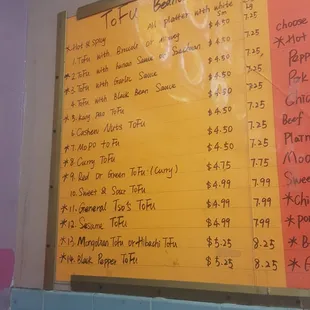 Tofu Bean
All platter with white
Sm Lg
* Hot & Spicy
1. Tofu with Broccoli or $4.50 7.25
* 2. Tofu with Hunan Sauce or Szechuan $4.50 7.25
* 3. Tofu with Garlic Sauce $4.50 7.25
4. Tofu with Black Bean Sauce $4.50 7.25
* 5. Kung Pao Tofu $4.50 7.25
6. Cashew Nuts Tofu $4.50 7.25
* 7. Mopo Tofu $4.50 7.25
* 8. Curry Tofu $4.75 7.75
* 9. Red or Green Tofu (Curry) $4.99 7.99
10. Sweet & Sour Tofu $4.99 7.99
* 11. General Tso's Tofu $4.99 7.99
* 12. Sesame Tofu $4.99 7.99
* 13. Mongolian Tofu or Hibachi Tofu $5.25 8.25
* 14. Black Pepper Tofu $5.25 8.25
choose
* Hot
Pepper
Pork
Beef
Sweet